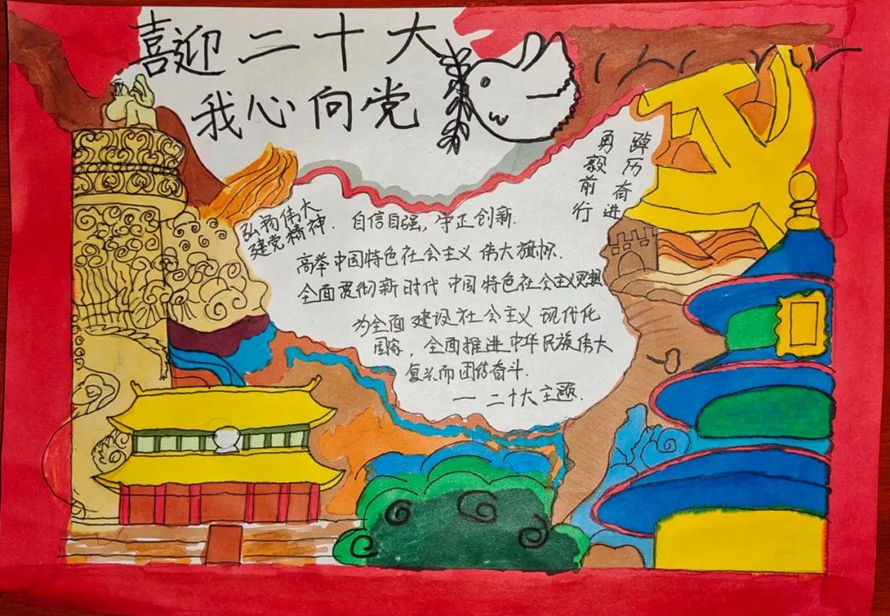 喜迎二十大
我心向党
踔厉奋进
勇毅前行
弘扬伟大
建党精神. 自信自强, 守正创新.
高举中国特色社会主义伟大旗帜.
全面贯彻新时代中国特色社会主义思想
为全面建设社会主义现代化
国家, 全面推进中华民族伟大
复兴而团结奋斗.
— 二十大主题.